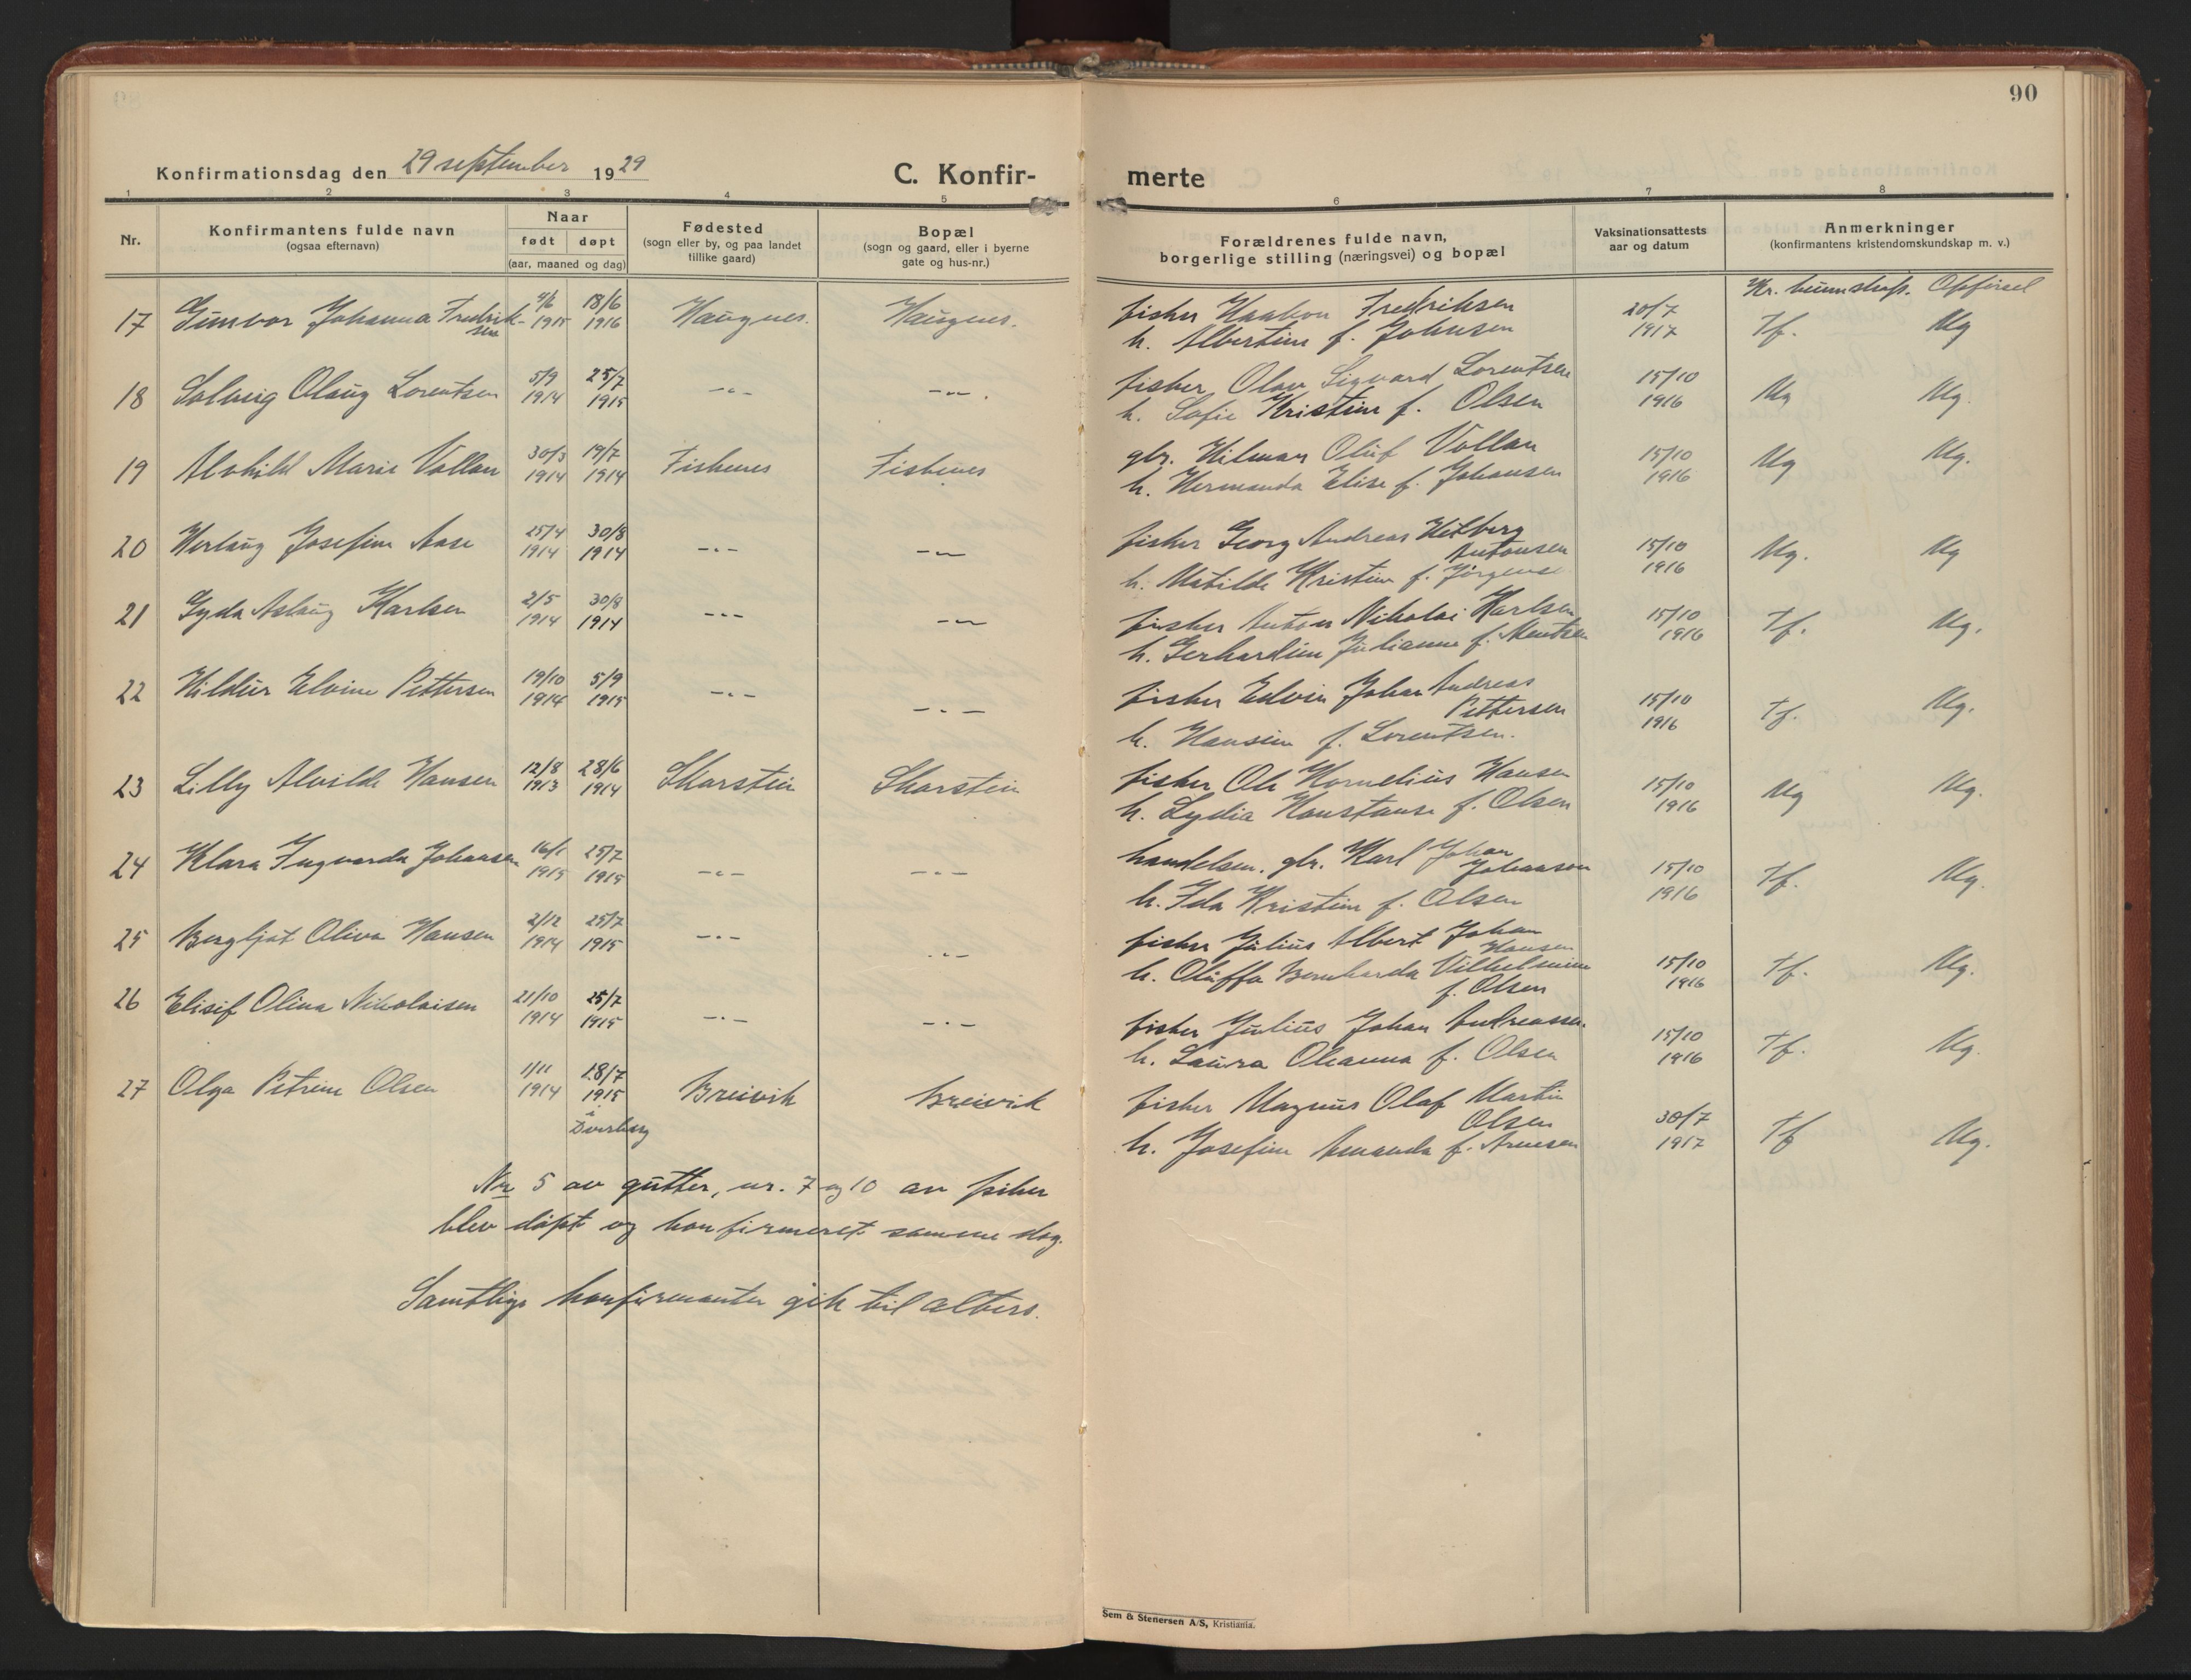 90
Konfirmationsdag den 29 september 1929
C. Konfir-
merte
1 2 3 4 5 6 7 8
Nr.
Konfirmantens fulde navn
(ogsaa efternavn)
Naar
født døpt
(aar, maaned og dag)
Fødested
(sogn eller by, og paa landet
tillike gaard)
Bopæl
(sogn og gaard, eller i byerne
gate og hus-nr.)
Forældrenes fulde navn,
borgerlige stilling (næringsvei) og bopæl
Vaksinationsattests
aar og datum
Anmerkninger
(konfirmantens kristendomskundskap m. v.)
Kr. kunnskap. Opførsel
17 Gunvor Johanna Fredrik-
sen
4/6 1915 18/6 1916 Haugnes. Haugnes.
fisker Haakon Fredriksen
h. Albertine f. Johnsen
20/7 1917 Tf. Mg
18 Solveig Olaug Lorentsen 5/9 1914 25/7 1915 -"- -"-.
fisker Olav Sigvard Lorentsen
h. Sofie Kristine f. Olsen
15/10 1916 Mg Mg.
19 Alvhild Marie Vollan 30/3 1914 19/7 1914 Fiskenes Fiskenes
gbr. Hilmar Oluf Vollan
h. Hermanda Elise f. Johansen
15/10 1916 Mg Mg.
20 Herlaug Josefine Aase 25/4 1914 30/8 1914 -"- -"-
fisker Georg Andreas Hilberg
Antonsen
h. Matilde Kristine f. Jørgense
15/10 1916 Mg. Mg
21 Gyda Aslaug Karlsen 2/5 1914 30/8 1914 -"- -"-
fisker Anton Nikolai Karlsen
h. Gerhardine Julianne f. Mentsen
15/10 1916 Tf. Mg.
22 Hildur Elvine Pettersen 19/10 1914 5/9 1915 -"- -"-
fisker Edvin Johan Andreas
Pettersen
h. Hansine f. Lorentsen.
15/10 1916 Tf. Mg.
23 Lilly Alvilde Hansen 12/8 1913 28/6 1914 Skarstein Skarstein
fisker Ole Kornelius Hansen
h. Lydia Konstanse f. Olsen
15/10 1916 Mg Mg.
24 Klara Ingvarda Johansen 16/1 1915 25/7 1915 -"- -"-
handelsm. gbr. Karl Johan
Johansen
h. Ida Kristine f. Olsen
15/10 1916 Tf. Mg.
25 Bergljot Oliva Hansen 2/12 1914 25/7 1915 -"- -"-
fisker Julius Albert Johan
Hansen
h. Oluffa Bernharda Vilhelmine
f. Olsen
15/10 1916 Tf. Mg.
26 Elisif Olina Nikolaisen 21/10 1914 25/7 1915 -"- -"-
fisker Julius Johan Andreassen
h. Laura Oleanna f. Olsen
15/10 1916 Tf. Mg.
27 Olga Petrine Olsen 1/11 1914 18/7 1915
i
Dverberg
Breivik Breivik
fisker Magnus Olaf Martin
Olsen
h. Josefine Amanda f. Arnesen
30/7 1917 Tf Mg.
Nr 5 av gutter, nr. 7 og 10 av piker
blev døpt og konfirmeret samme dag.
Samtlige konfirmanter gik til alters.
Sem & Stenersen A/S, Kristiania.